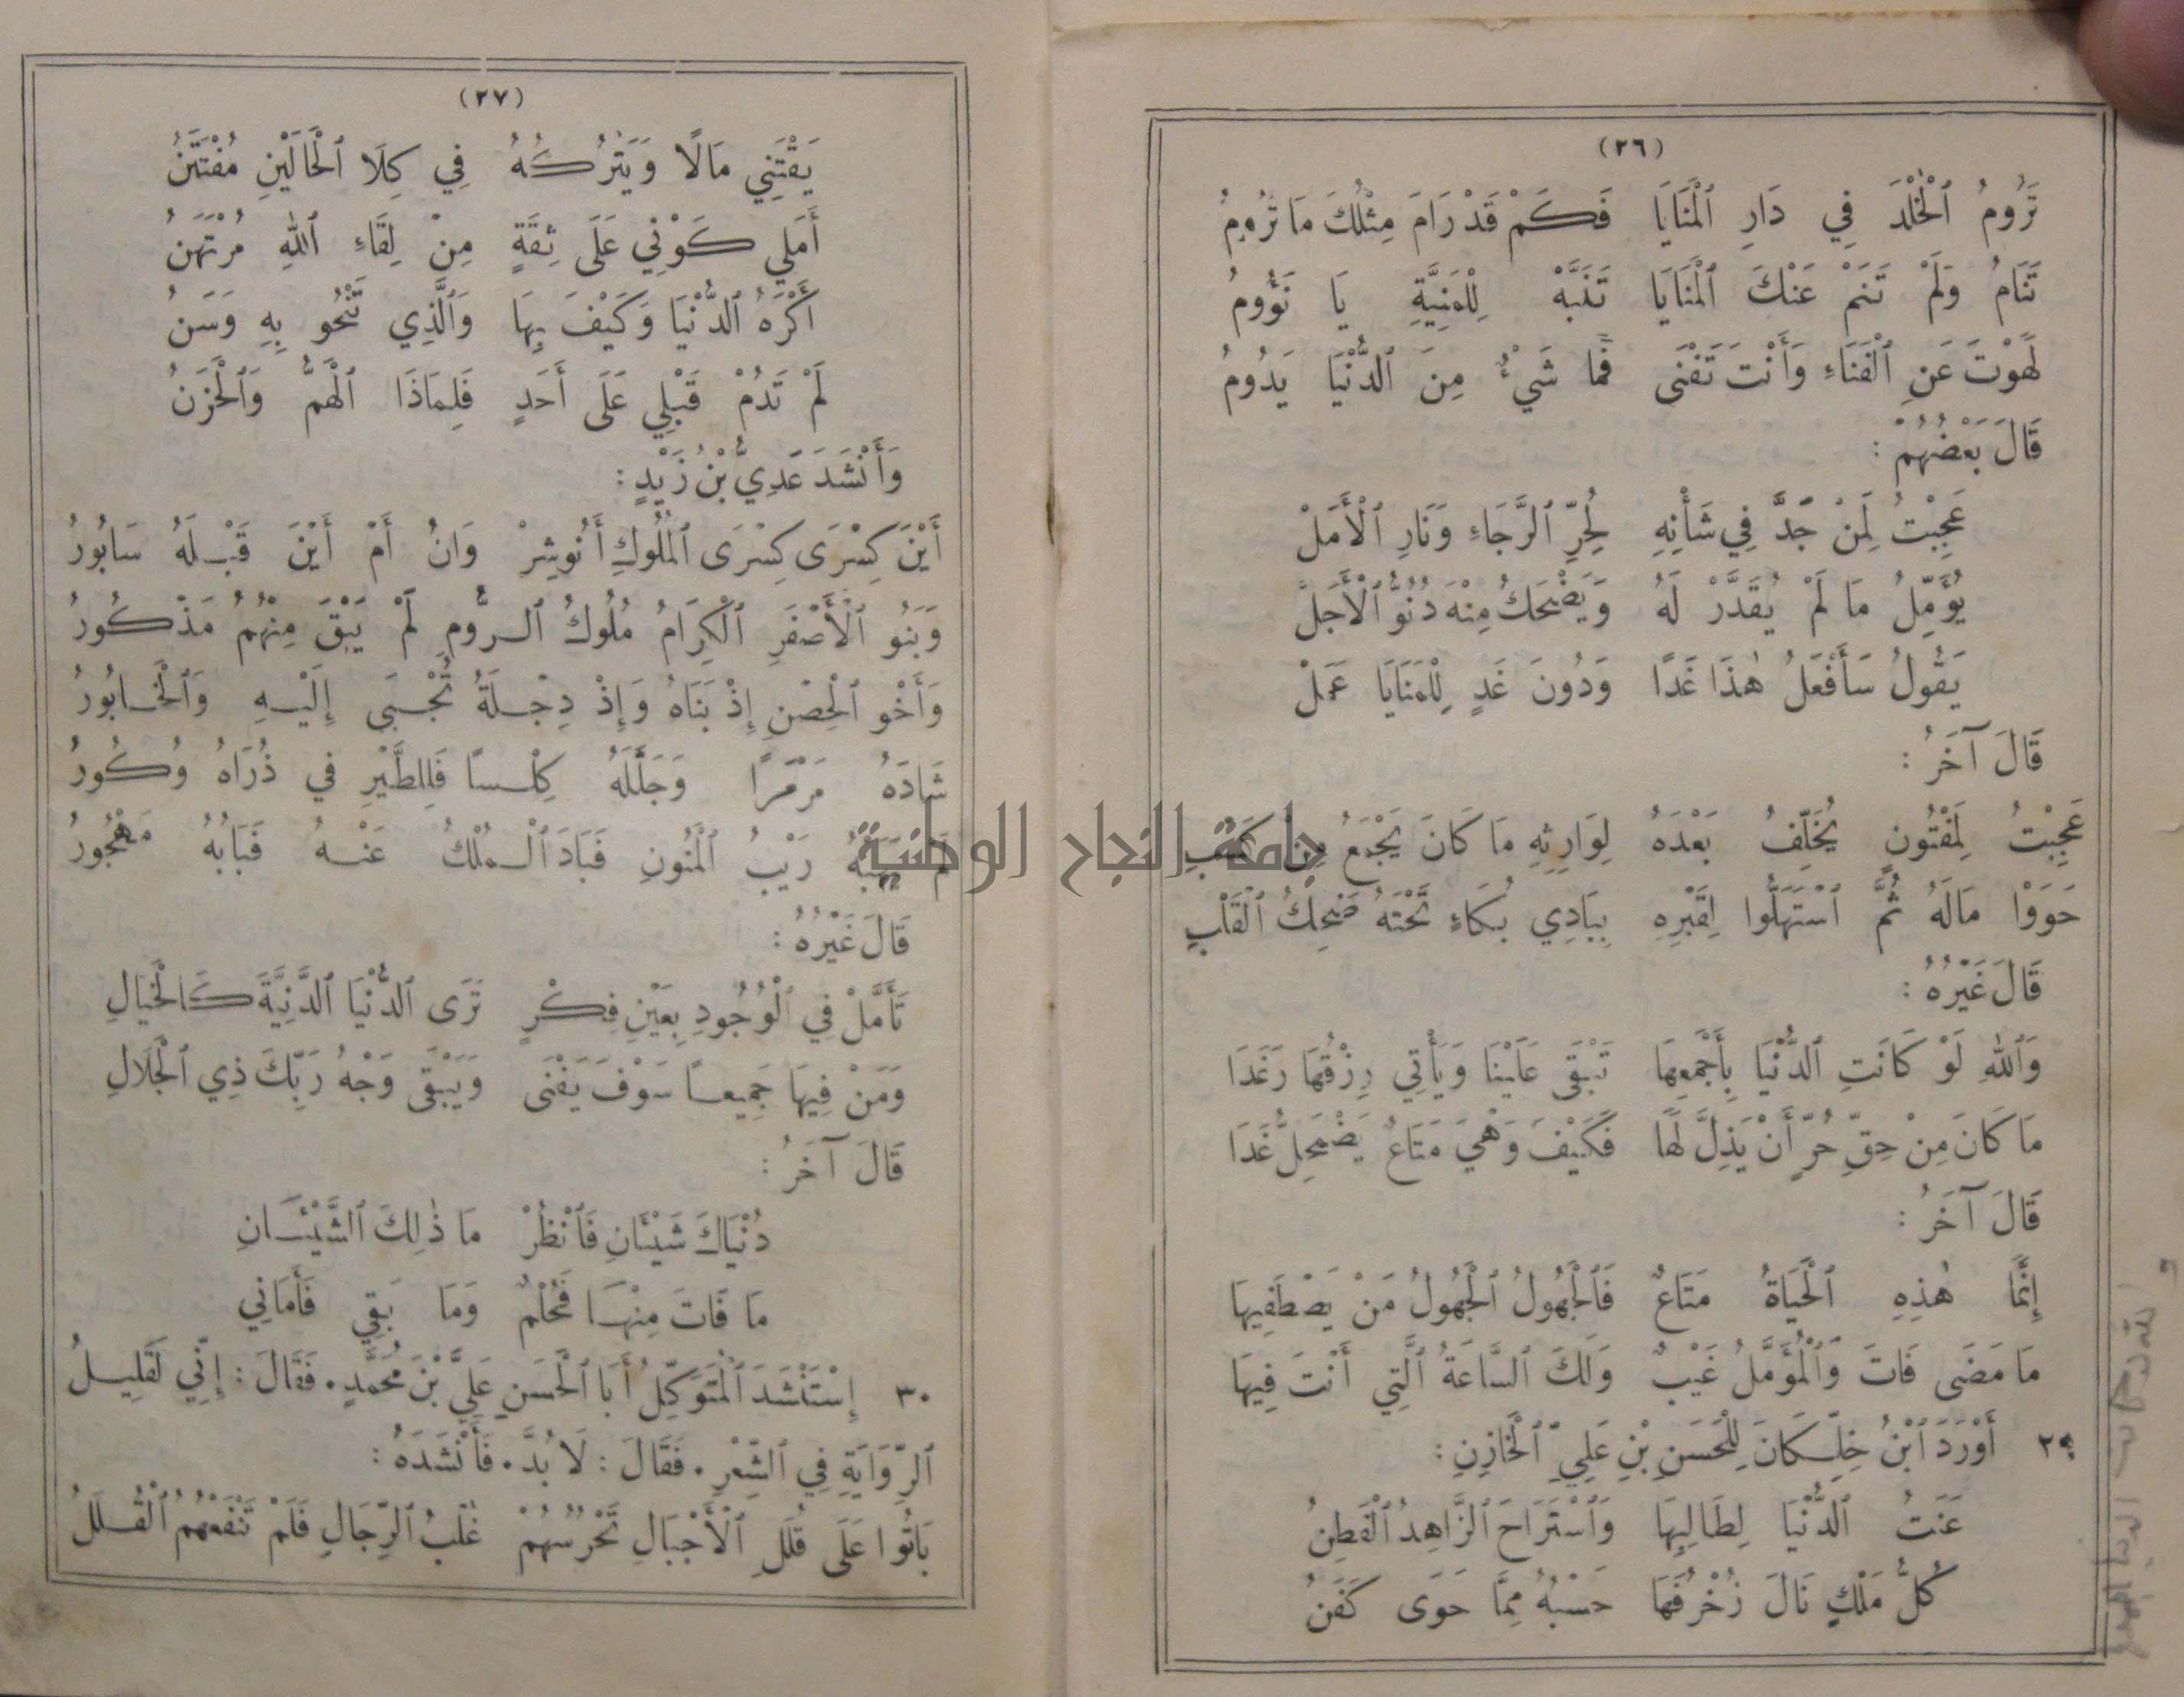 (٢٦)
تَرُومُ ٱلْخُلْدَ فِي دَارِ ٱلْمَنَايَا فَكَمْ قَدْ رَامَ مِثْلُكَ مَا تَرُومُ
تَنَامُ وَلَمْ تَنَمْ عَنْكَ ٱلْمَنَايَا تَنَبَّهْ لِلْمَنِيَّةِ يَا نَؤُومُ
لَهَوْتَ عَنِ ٱلْفَنَاءِ وَأَنْتَ تَفْنَى فَمَا شَيْءٌ مِنَ ٱلدُّنْيَا يَدُومُ
قَالَ بَعْضُهُمْ :
عَجِبْتُ لِمَنْ جَدَّ فِي شَأْنِهِ لِحُرِّ ٱلرَّجَاءِ وَنَارِ ٱلْأَمَلْ
يُؤَمِّلُ مَا لَمْ يُقَدَّرْ لَهُ وَيَضْحَكُ مِنْهَ دُنُوُّ ٱلْأَجَلْ
يَقُولُ سَأَفْعَلُ هٰذَا غَدًا وَدُونَ غَدٍ لِلْمَنَايَا عَمَلْ
قَالَ آخَرُ :
عَجِبْتُ لِمَفْتُونٍ يُخَلِّفُ بَعْدَهُ لِوَارِثِهِ مَا كَانَ يَجْمَعُ مِنْ كَسْبِ
حَوَوْا مَالَهُ ثُمَّ ٱسْتَهَلُّوا لِقَبْرِهِ بِبَادِي بُكَاءٍ تَحْتَهُ ضَحِكُ ٱلْقَلْبِ
قَالَ غَيْرُهُ :
وَٱللهِ لَوْ كَانَتِ ٱلدُّنْيَا بِأَجْمَعِهَا تَبْقَى عَلَيْنَا وَيَأْتِي رِزْقُهَا رَغَدَا
مَا كَانَ مِنْ حَقِّ حُرٍّ أَنْ يَذِلَّ لَهَا فَكَيْفَ وَهْيَ مَتَاعٌ يَضْمَحِلُّ غَدَا
قَالَ آخَرُ :
إِنَّمَا هٰذِهِ ٱلْحَيَاةُ مَتَاعٌ فَٱلْجَهُولُ ٱلْجَهُولُ مَنْ يَصْطَفِيهَا
مَا مَضَى فَاتَ وَٱلْمُؤَمَّلُ غَيْبٌ وَلَكَ ٱلسَّاعَةُ ٱلَّتِي أَنْتَ فِيهَا
٢٩ أَوْرَدَ ٱبْنُ خِلِّكَانَ لِلْحَسَنِ بْنِ عَلِيٍّ ٱلْخَازِنِ :
عَنَتُ ٱلدُّنْيَا لِطَالِبِهَا وَٱسْتَرَاحَ ٱلزَّاهِدُ ٱلْفَطِنُ
كُلُّ مَلْكٍ نَالَ زُخْرُفَهَا حَسْبُهُ مِمَّا حَوَى كَفَنُ
(٢٧)
يَقْتَنِي مَالًا وَيَتْرُكُهُ فِي كِلَا ٱلْحَالَيْنِ مُفْتَتَنُ
أَمَلِي كَوْنِي عَلَى ثِقَةٍ مِنْ لِقَاءِ ٱللهِ مُرْتَهَنُ
أَكْرَهُ ٱلدُّنْيَا وَكَيْفَ بِهَا وَٱلَّذِي تَنْحُو بِهِ وَسَنُ
لَمْ تَدُمْ قَبْلِي عَلَى أَحَدٍ فَلِمَاذَا ٱلْهَمُّ وَٱلْحَزَنُ
وَأَنْشَدَ عَدِيُّ بْنُ زَيْدٍ :
أَيْنَ كِسْرَى كِسْرَى ٱلْمُلُوكِ أَنُوشِرْ وَانُ أَمْ أَيْنَ قَبْلَهُ سَابُورُ
وَبَنُو ٱلْأَصْفَرِ ٱلْكِرَامُ مُلُوكُ ٱلرُّومِ لَمْ يَبْقَ مِنْهُمُ مَذْكُورُ
وَأَخُو ٱلْحِصْنِ إِذْ بَنَاهُ وَإِذْ دِجْلَةُ تُجْبَى إِلَيْهِ وَٱلْخَابُورُ
شَادَهُ مَرْمَرًا وَجَلَّلَهُ كِلْسًا فَلِلطَّيْرِ فِي ذُرَاهُ وُكُورُ
لَمْ يَهَبْهُ رَيْبُ ٱلْمَنُونِ فَبَادَ ٱلْمُلْكُ عَنْهُ فَبَابُهُ مَهْجُورُ
قَالَ غَيْرُهُ :
تَأَمَّلْ فِي ٱلْوُجُودِ بِعَيْنِ فِكْرٍ تَرَى ٱلدُّنْيَا ٱلدَّنِيَّةَ كَالْخَيَالِ
وَمَنْ فِيهَا جَمِيعًا سَوْفَ يَفْنَى وَيَبْقَى وَجْهُ رَبِّكَ ذِي ٱلْجَلَالِ
قَالَ آخَرُ :
دُنْيَاكَ شَيْئَانِ فَٱنْظُرْ مَا ذٰلِكَ ٱلشَّيْئَانِ
مَا فَاتَ مِنْهَا فَحُلْمٌ وَمَا بَقِي فَأَمَانِي
٣٠ إِسْتَنْشَدَ ٱلْمُتَوَكِّلُ أَبَا ٱلْحَسَنِ عَلِيَّ بْنَ مُحَمَّدٍ. فَقَالَ : إِنِّي لَقَلِيلُ
ٱلرِّوَايَةِ فِي ٱلشِّعْرِ. فَقَالَ : لَا بُدَّ. فَأَنْشَدَهُ :
بَاتُوا عَلَى قُلَلِ ٱلْأَجْبَالِ تَحْرُسُهُمْ غُلْبُ ٱلرِّجَالِ فَلَمْ تَنْفَعْهُمُ ٱلْقُلَلُ
جامعة النجاح الوطنية